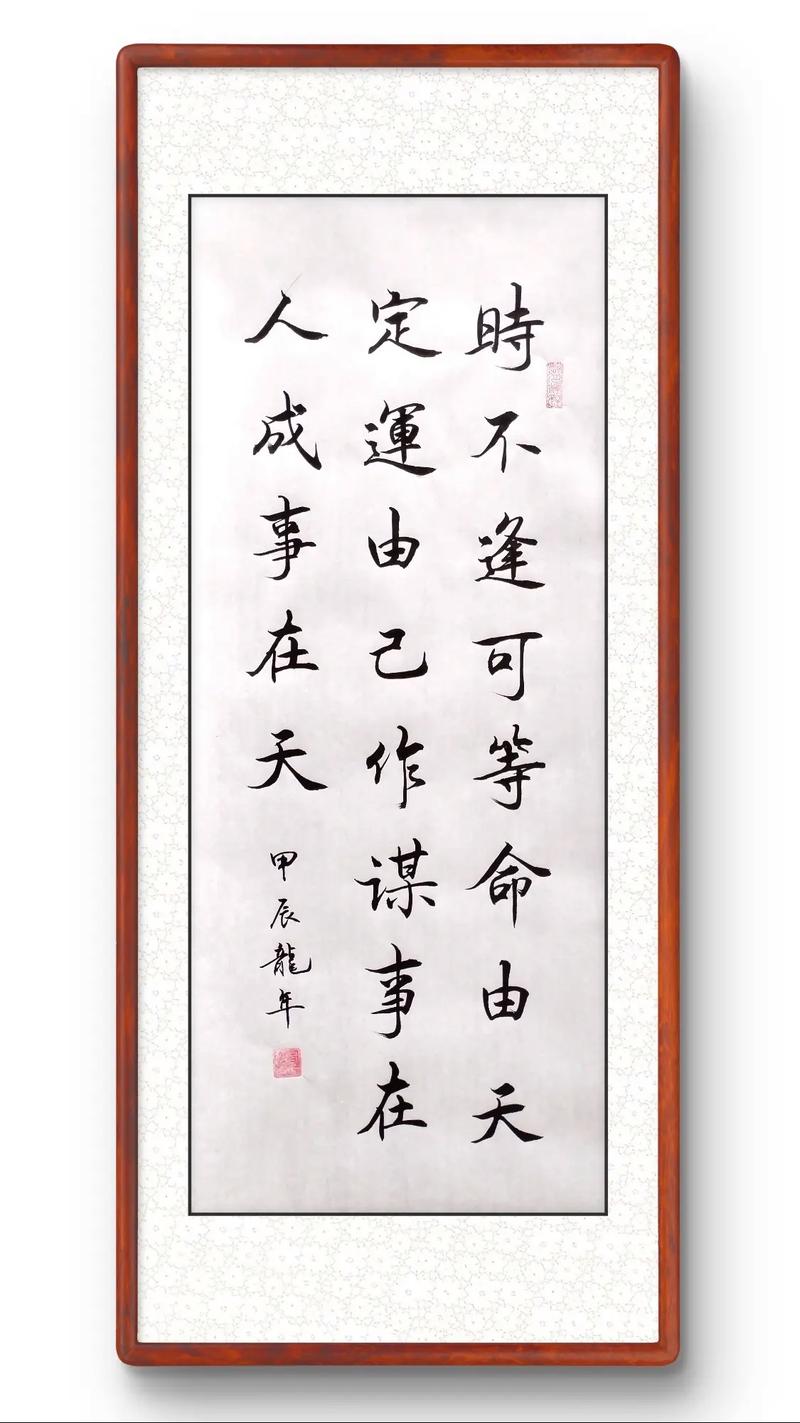 時不逢可等命由天
定運由己作謀事在
人成事在天
甲辰龍年